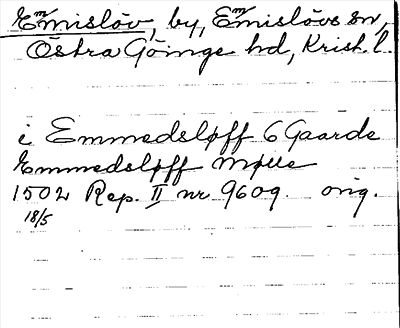 Emmislöv, by, Emmislövs sn,
Östra Göinge hd, Krist. l.
i Emmedsløff 6 Gaarde
Emmedsløff Mølle
1502 Rep. II nr 9609. orig.
18/5